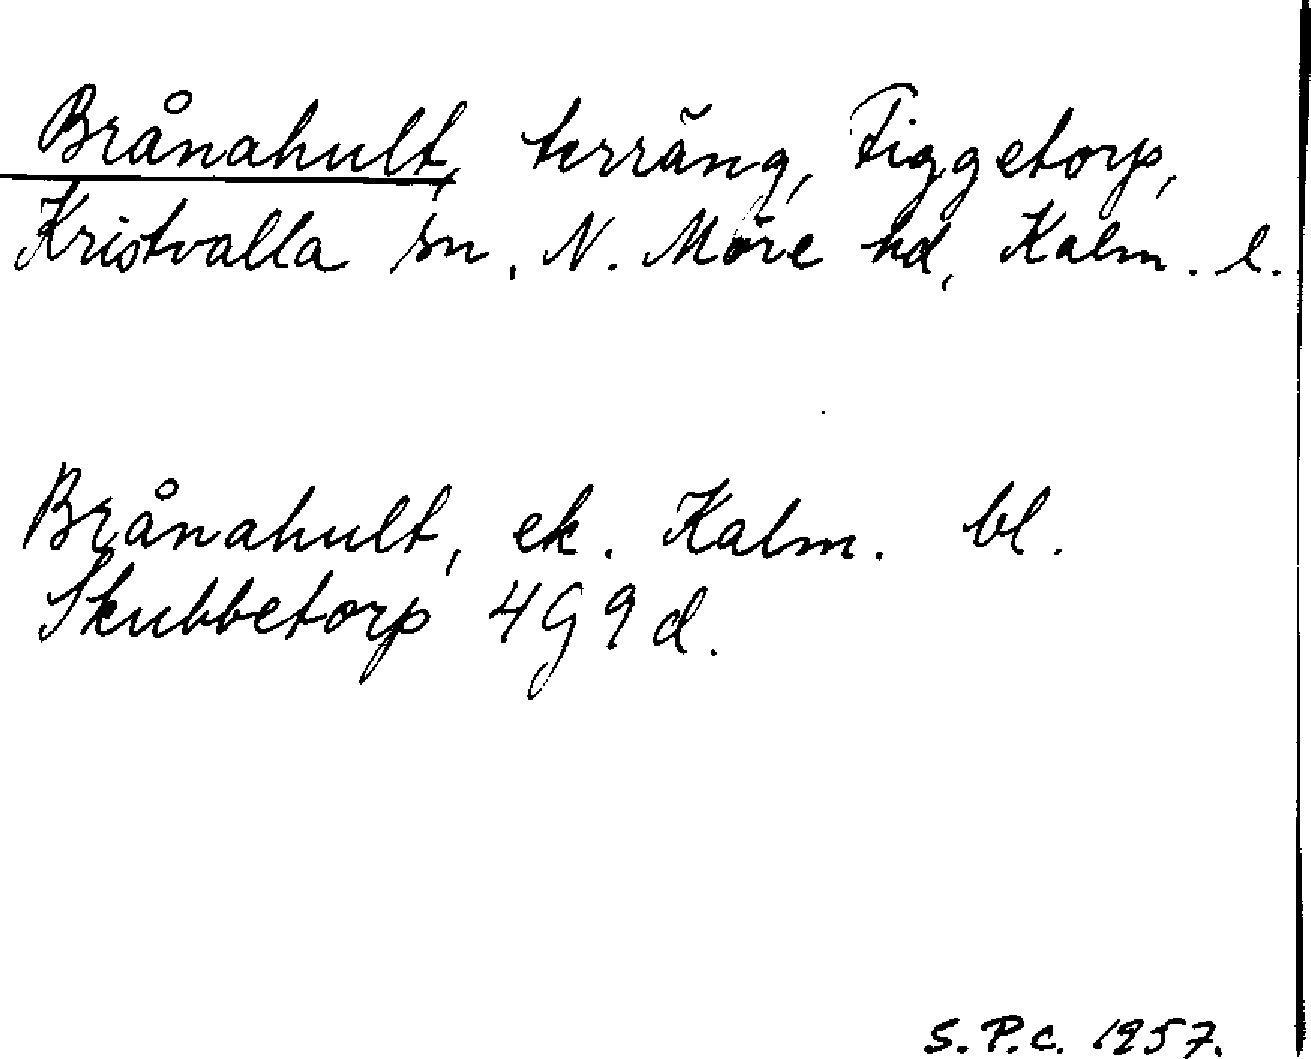 Brånahult, terräng, Figgetorp,
Kristvalla sn, N. Möre hd, Kalm. l.
Brånahult, ek. Kalm. bl.
Skubbetorp 4G9d.
S.P.C. 1957.